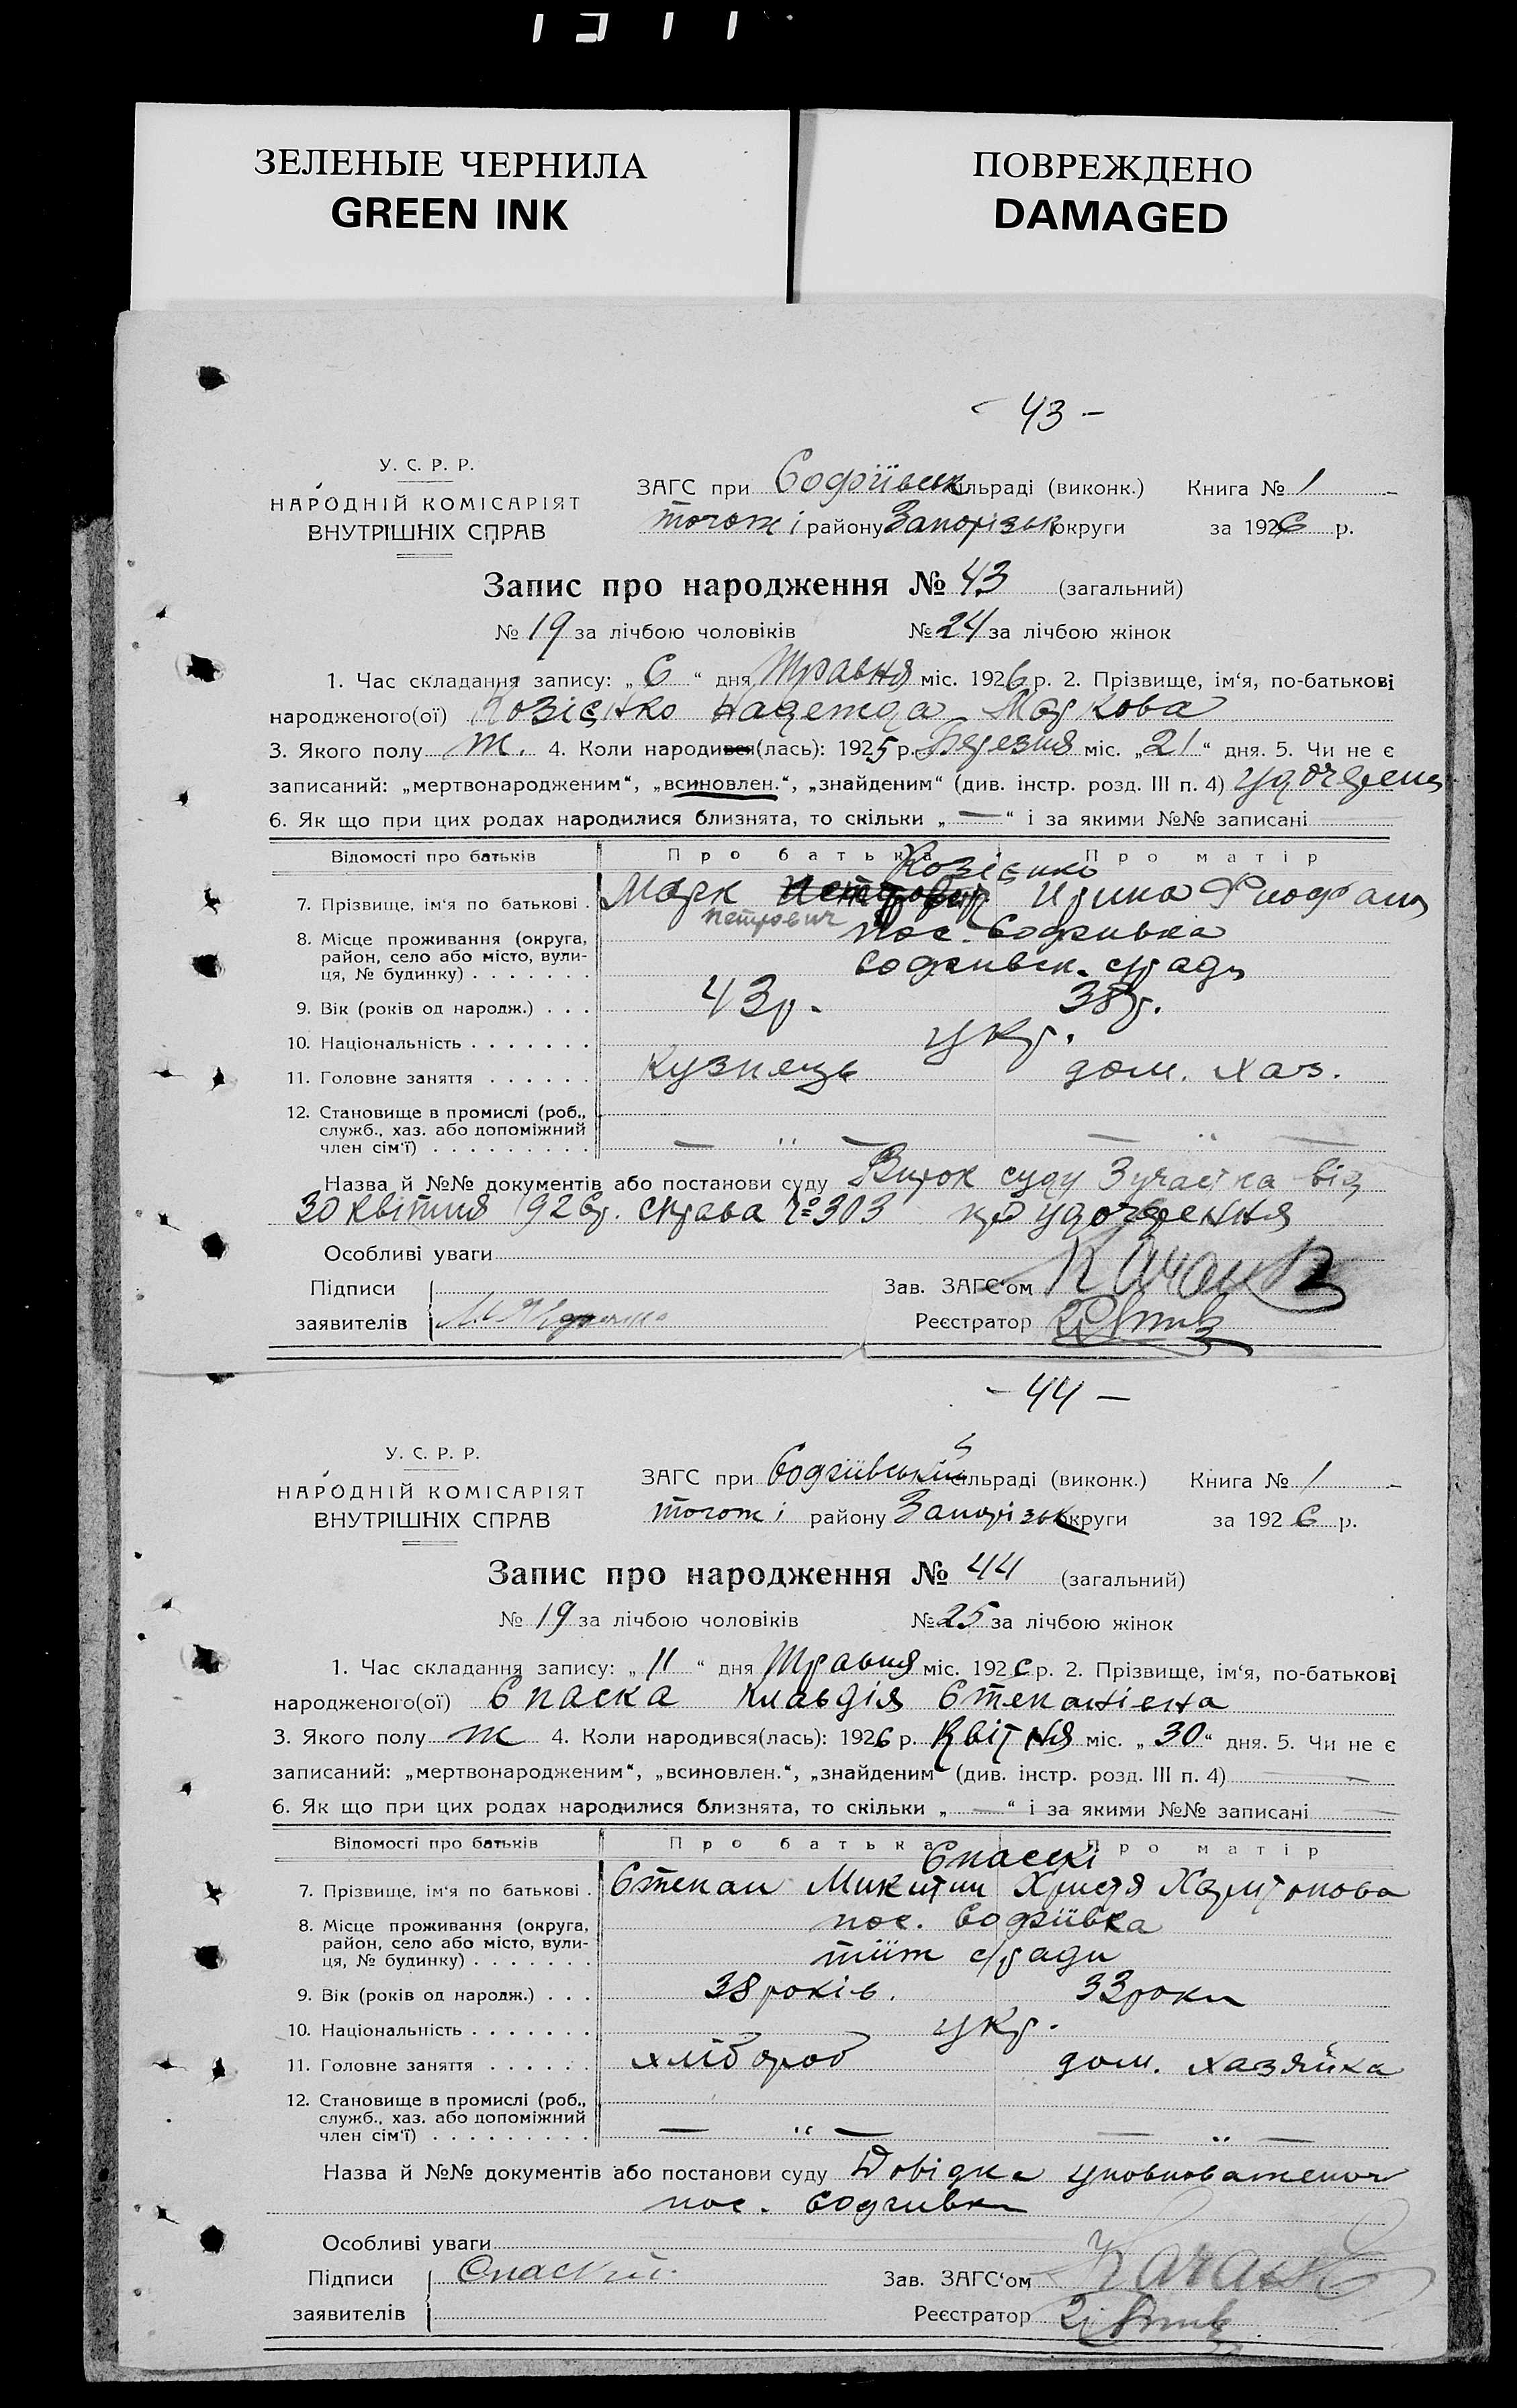 ЗЕЛЕНЫЕ ЧЕРНИЛА
GREEN INK
ПОВРЕЖДЕНО
DAMAGED
- 43 -
У. С. Р. Р.
НАРОДНІЙ КОМІСАРІЯТ
ВНУТРІШНІХ СПРАВ
ЗАГС при Софіївськ сільраді (виконк.) Книга № 1
тогож і району Запорізьк округи за 1926 р.
Запис про народження № 43 (загальний)
№ 19 за лічбою чоловіків № 24 за лічбою жінок
1. Час складання запису: „ 6 “ дня Травня міс. 1926 р. 2. Прізвище, ім'я, по-батькові
народженого(ої) Козієнко Надежда Маркова
3. Якого полу ж. 4. Коли народився(лась): 1925 р. Березня міс. „ 21 “ дня. 5. Чи не є
записаний: „мертвонародженим“, „всиновлен.“, „знайденим“ (див. інстр. розд. III п. 4) удочерена
6. Як що при цих родах народилися близнята, то скільки „ — “ і за якими №№ записані
Відомості про батьків Про батька Про матір
Козієнко
7. Прізвище, ім'я по батькові . Марк Петрович Ирина
петрович
8. Місце проживання (округа, район, село або місто, вулиця, № будинку) . . . . . . . пос. Софиивка
Софиивск. с/ради
9. Вік (років од народж.) . . . 43 р. 38 р.
10. Національність . . . . . . . укр.
11. Головне заняття . . . . . . Кузнець дом. хаз.
12. Становище в промислі (роб., служб., хаз. або допоміжний член сім'ї) . . . . . . . . . — " — — " —
Назва й №№ документів або постанови суду Вирок суду 3 участка від
30 квітня 1926 р. справа № 303 про удочерення
Особливі уваги
Підписи
заявителів
Зав. ЗАГС'ом
Реєстратор
- 44 -
У. С. Р. Р.
НАРОДНІЙ КОМІСАРІЯТ
ВНУТРІШНІХ СПРАВ
ЗАГС при Софіївській сільраді (виконк.) Книга № 1
тогож і району Запорізьк округи за 1926 р.
Запис про народження № 44 (загальний)
№ 19 за лічбою чоловіків № 25 за лічбою жінок
1. Час складання запису: „ 11 “ дня Травня міс. 1926 р. 2. Прізвище, ім'я, по-батькові
народженого(ої) Спаска Клавдія Степанієна
3. Якого полу ж 4. Коли народився(лась): 1926 р. Квітня міс. „ 30 “ дня. 5. Чи не є
записаний: „мертвонародженим“, „всиновлен.“, „знайденим“ (див. інстр. розд. III п. 4)
6. Як що при цих родах народилися близнята, то скільки „ — “ і за якими №№ записані
Відомості про батьків Про батька Про матір
Спаскі
7. Прізвище, ім'я по батькові . Степан Микитин Христя Харитонова
8. Місце проживання (округа, район, село або місто, вулиця, № будинку) . . . . . . . пос. Софіївка
тііж с/ради
9. Вік (років од народж.) . . . 38 років. 33 роки
10. Національність . . . . . . . укр.
11. Головне заняття . . . . . . хлібороб дом. хазяйка
12. Становище в промислі (роб., служб., хаз. або допоміжний член сім'ї) . . . . . . . . . — " — — " —
Назва й №№ документів або постанови суду Довідка
пос. Софиивки
Особливі уваги
Підписи Спаский
заявителів
Зав. ЗАГС'ом
Реєстратор